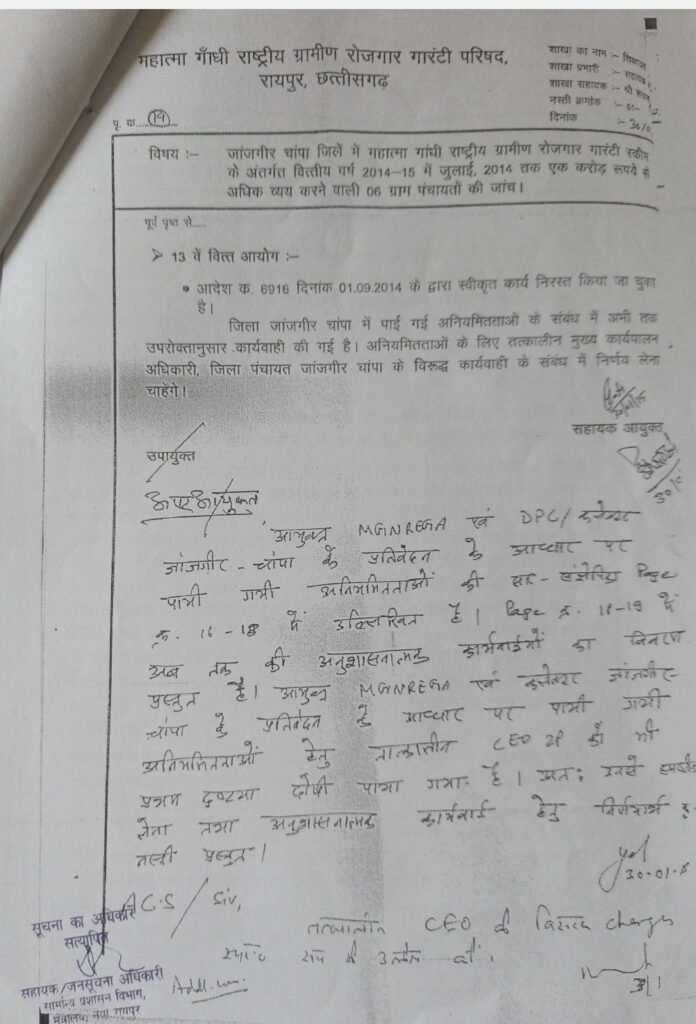 महात्मा गाँधी राष्ट्रीय ग्रामीण रोजगार गारंटी परिषद,
रायपुर, छत्तीसगढ़
शाखा का नाम :-
शाखा प्रभारी :-
शाखा सहायक :- श्री
नस्ती क्रमांक :- 01-
दिनांक :- 30/
पृ. क. (19)
विषय :- जांजगीर चांपा जिले में महात्मा गांधी राष्ट्रीय ग्रामीण रोजगार गारंटी स्कीम
के अंतर्गत वित्तीय वर्ष 2014-15 में जुलाई, 2014 तक एक करोड़ रूपये से
अधिक व्यय करने वाली 06 ग्राम पंचायतों की जांच।
पूर्व पृष्ठ से.....
➢ 13 वें वित्त आयोग :-
• आदेश क. 6916 दिनांक 01.09.2014 के द्वारा स्वीकृत कार्य निरस्त किया जा चुका
है।
जिला जांजगीर चांपा में पाई गई अनियमितताओं के संबंध में अभी तक
उपरोक्तानुसार कार्यवाही की गई है। अनियमितताओं के लिए तत्कालीन मुख्य कार्यपालन
अधिकारी, जिला पंचायत जांजगीर चांपा के विरूद्ध कार्यवाही के संबंध में निर्णय लेना
चाहेंगे।
सहायक आयुक्त
उपायुक्त
अपर आयुक्त
आयुक्त MGNREGA एवं DPC/ कलेक्टर
जांजगीर-चांपा के प्रतिवेदन के आधार पर
पायी गयी अनियमितताओं की सार-संक्षेपिका Page
क्र. 16-18 में उल्लिखित है। Page क्र. 18-19 में
अब तक की अनुशासनात्मक कार्यवाईयों का विवरण
प्रस्तुत है। आयुक्त MGNREGA एवं कलेक्टर जांजगीर-
चांपा के प्रतिवेदन के आधार पर पायी गयी
अनियमितताओं हेतु तात्कालीन CEO ZP को भी
प्रथम दृष्टया दोषी पाया गया है। अतः उनसे स्पष्टीकरण
लेना तथा अनुशासनात्मक कार्यवाई हेतु निर्णयार्थ
नस्ती प्रस्तुत।
30-01-
A.C.S / Sir,
तत्कालीन CEO के विरूद्ध charges
स्पष्ट रूप से उल्लेख करें।
सूचना का अधिकार
सत्यापित
सहायक/जनसूचना अधिकारी
सामान्य प्रशासन विभाग,
मंत्रालय, नया रायपुर